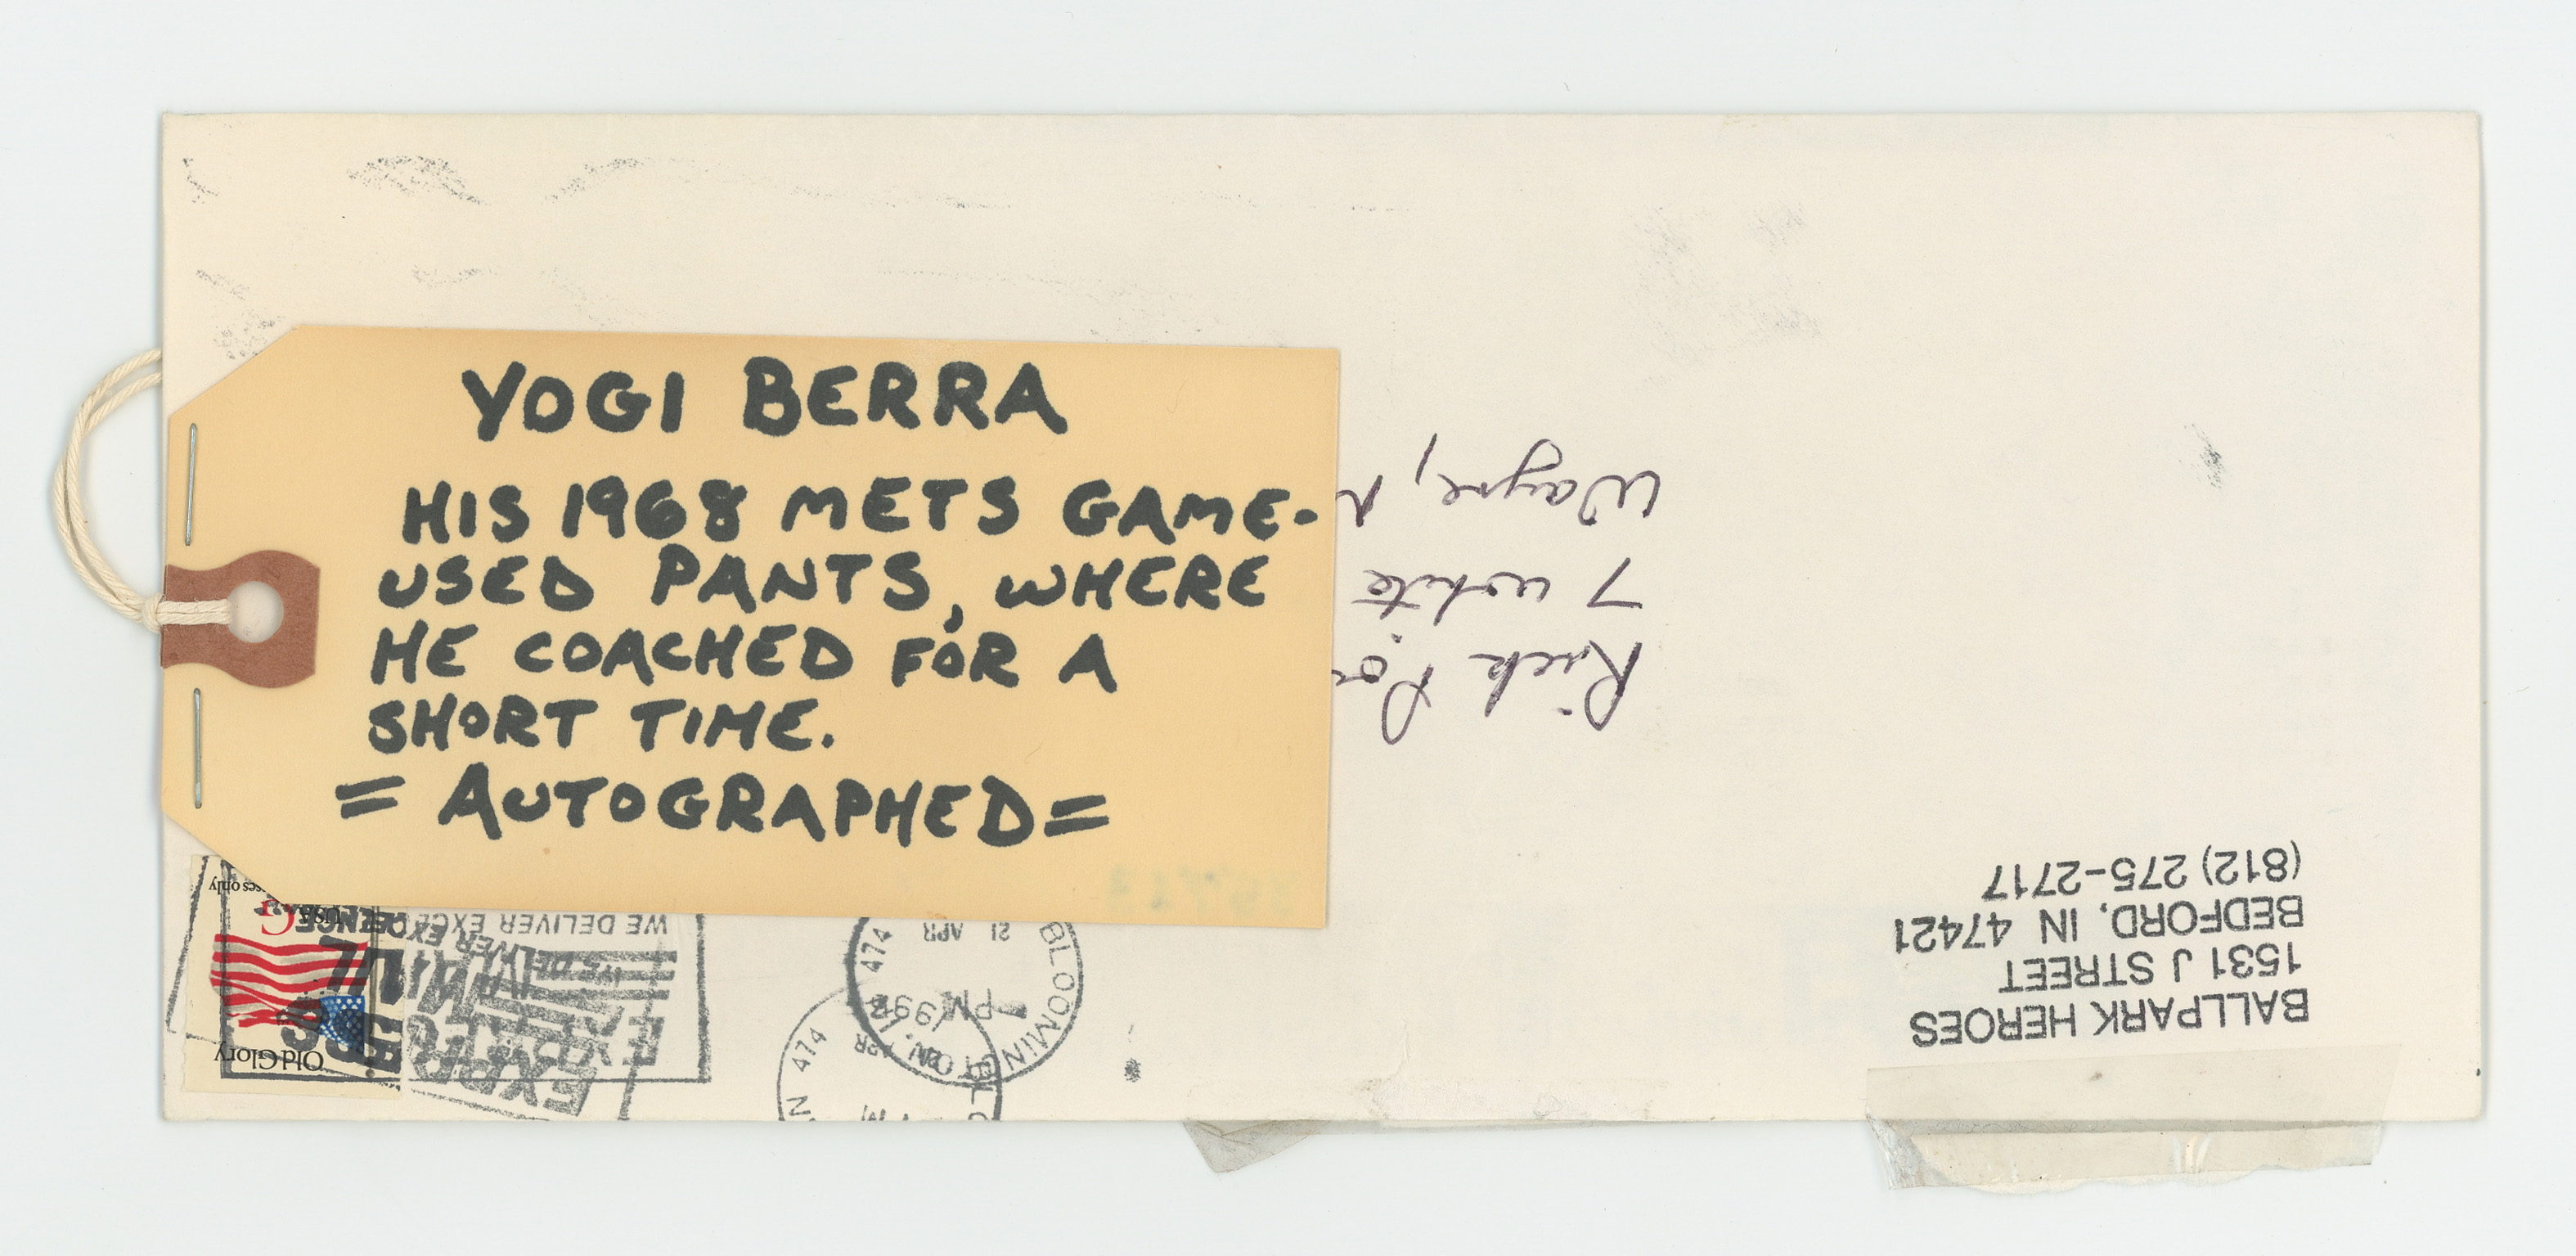 YOGI BERRA
HIS 1968 METS GAME-
USED PANTS, WHERE
HE COACHED FOR A
SHORT TIME.
= AUTOGRAPHED =
BALLPARK HEROES
1531 J STREET
BEDFORD, IN 47421
(812) 275-2717
Rick
7 White
Wayne, N
Old Glory
USA G
WE DELIVER EXCE
BLOOMINGTON, IN 474
PM
21 APR